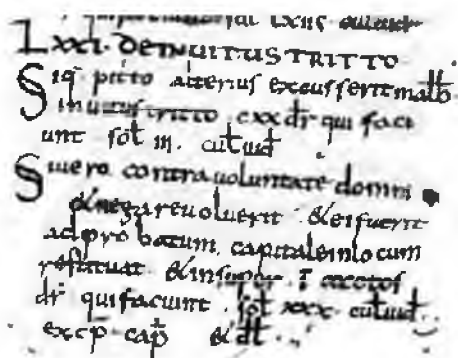 LXXI. DE INUITUS TRITTO
Siq pitto alterius excusserit malƀ
inuitus tritto cxx dr qui faci
unt sol III. cul iud
Si uero contra uoluntate domni
& negare uoluerit & ei fuerit
adprobatum. capitale in locum
restituat & insuper
dr qui faciunt sol xxx. cul iud.
excp cap & dl.